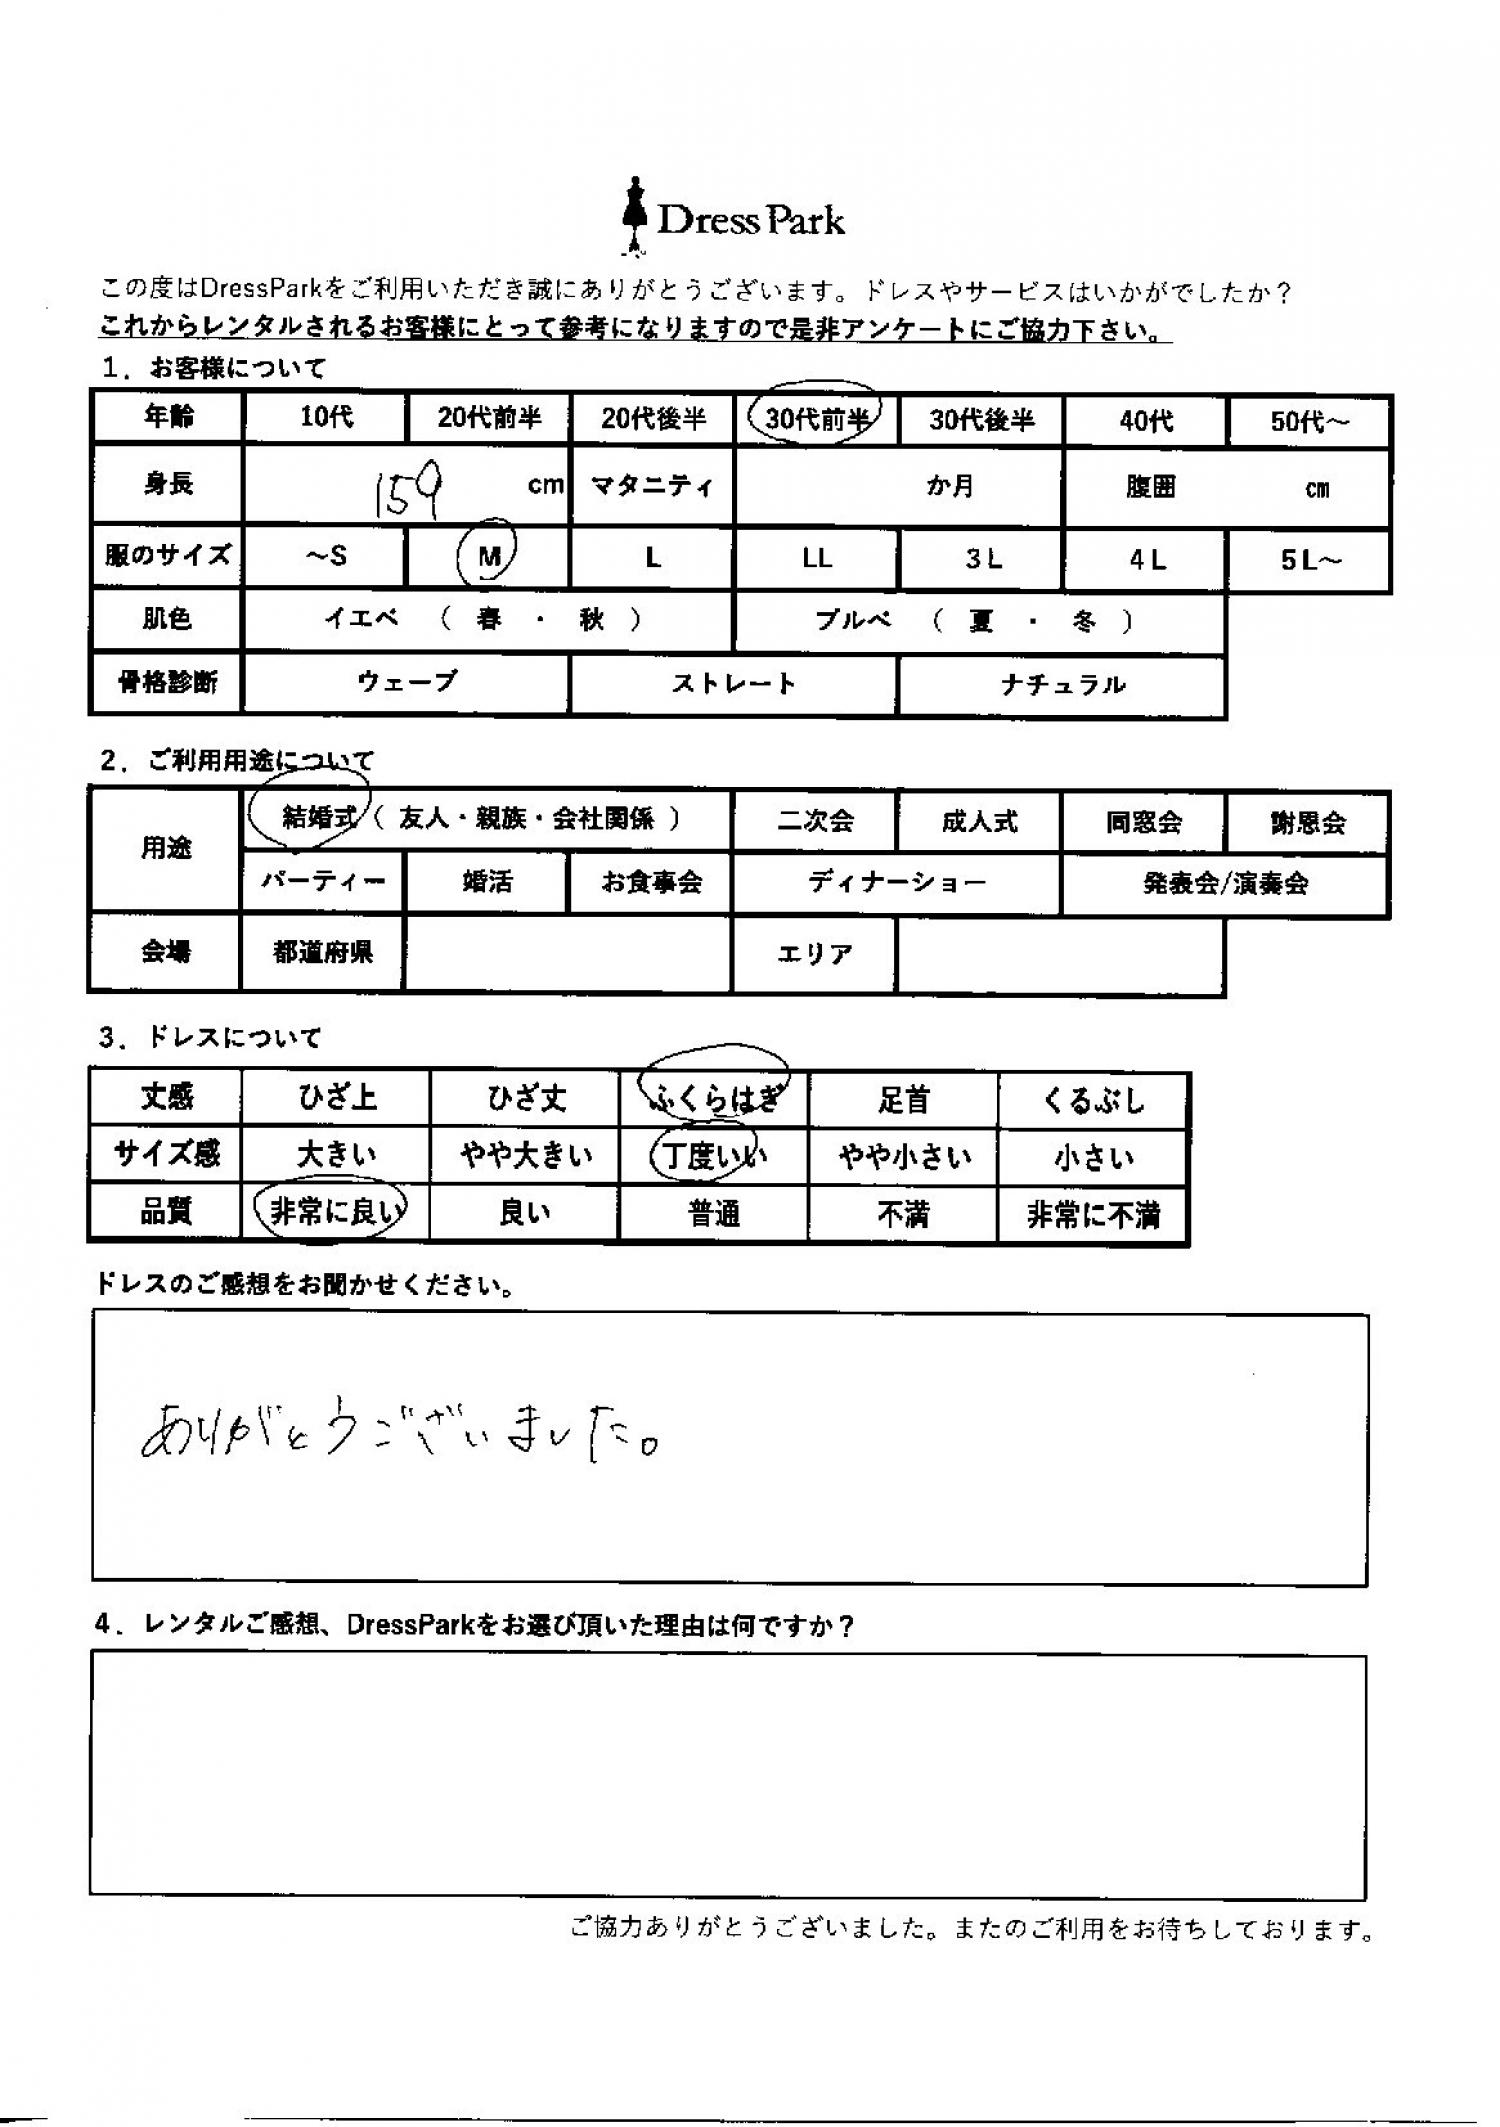 Dress Park
この度はDressParkをご利用いただき誠にありがとうございます。ドレスやサービスはいかがでしたか？
これからレンタルされるお客様にとって参考になりますので是非アンケートにご協力下さい。
1．お客様について
年齢 10代 20代前半 20代後半 30代前半 30代後半 40代 50代～
身長 159 cm マタニティ か月 腹囲 ㎝
服のサイズ ～S M L LL 3L 4L 5L～
肌色 イエベ （ 春 ・ 秋 ） ブルベ （ 夏 ・ 冬 ）
骨格診断 ウェーブ ストレート ナチュラル
2．ご利用用途について
用途 結婚式（ 友人・親族・会社関係 ） 二次会 成人式 同窓会 謝恩会
パーティー 婚活 お食事会 ディナーショー 発表会/演奏会
会場 都道府県 エリア
3．ドレスについて
丈感 ひざ上 ひざ丈 ふくらはぎ 足首 くるぶし
サイズ感 大きい やや大きい 丁度いい やや小さい 小さい
品質 非常に良い 良い 普通 不満 非常に不満
ドレスのご感想をお聞かせください。
ありがとうございました。
4．レンタルご感想、DressParkをお選び頂いた理由は何ですか？
ご協力ありがとうございました。またのご利用をお待ちしております。